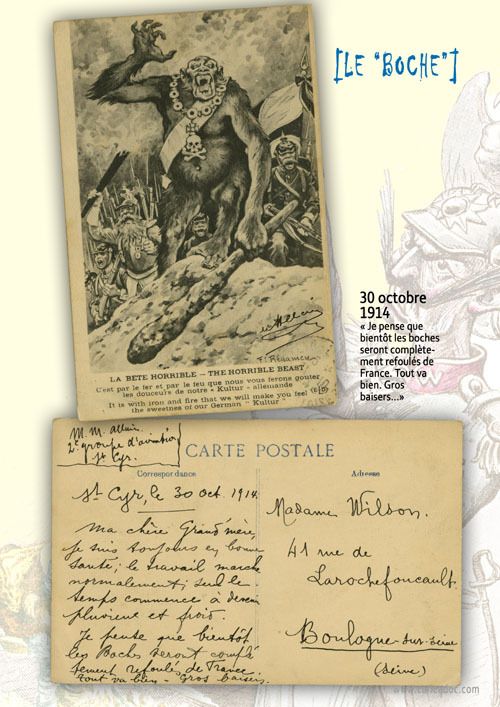 [LE "BOCHE"]
30 octobre
1914
« Je pense que
bientôt les boches
seront complète-
ment refoulés de
France. Tout va
bien. Gros
baisers...»
F. Régamey
LA BETE HORRIBLE — THE HORRIBLE BEAST
C'est par le fer et par le feu que nous vous ferons goûter
les douceurs de notre « Kultur » allemande
It is with iron and fire that we will make you feel
the sweetnes of our German "Kultur"
M. M. Allain
2e groupe d'aviation
St Cyr.
CARTE POSTALE
Correspondance
Adresse
St Cyr, le 30 Oct. 1914.
Ma chère Grand'mère,
je suis toujours en bonne
santé; le travail marche
normalement; seul le
temps commence à devenir
pluvieux et froid.
Je pense que bientôt
les Boches seront complè
tement refoulés de France
tout va bien - Gros baisers.
Madame Wilson.
41 rue de
Larochefoucault.
Boulogne-sur-Seine
(Seine)